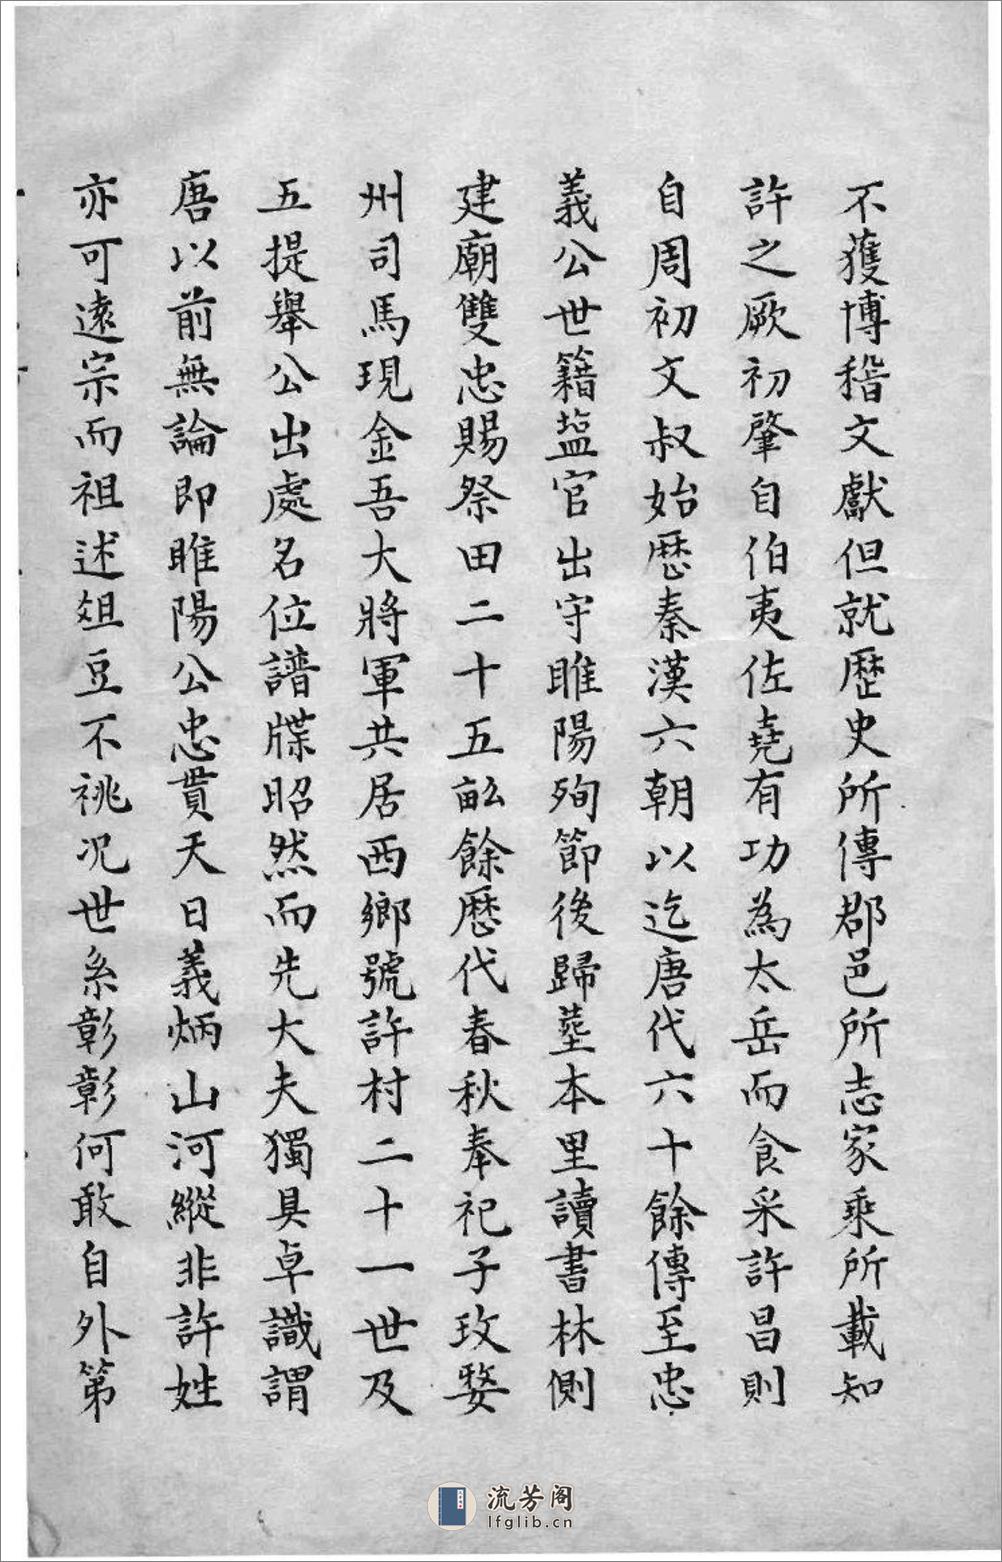 不獲博稽文獻但就歷史所傳郡邑所志家乘所載知
許之厥初肇自伯夷佐堯有功為太岳而食采許昌則
自周初文叔始歷秦漢六朝以迄唐代六十餘傳至忠
義公世籍塩官出守睢陽殉節後歸塟本里讀書林側
建廟雙忠賜祭田二十五畝餘歷代春秋奉祀子玫娶
州司馬現金吾大將軍共居西鄉號許村二十一世及
五提舉公出處名位譜牒昭然而先大夫獨具卓識謂
唐以前無論即睢陽公忠貫天日義炳山河縱非許姓
亦可遠宗而祖述俎豆不祧况世系彰彰何敢自外第
流芳阁
lfglib.cn